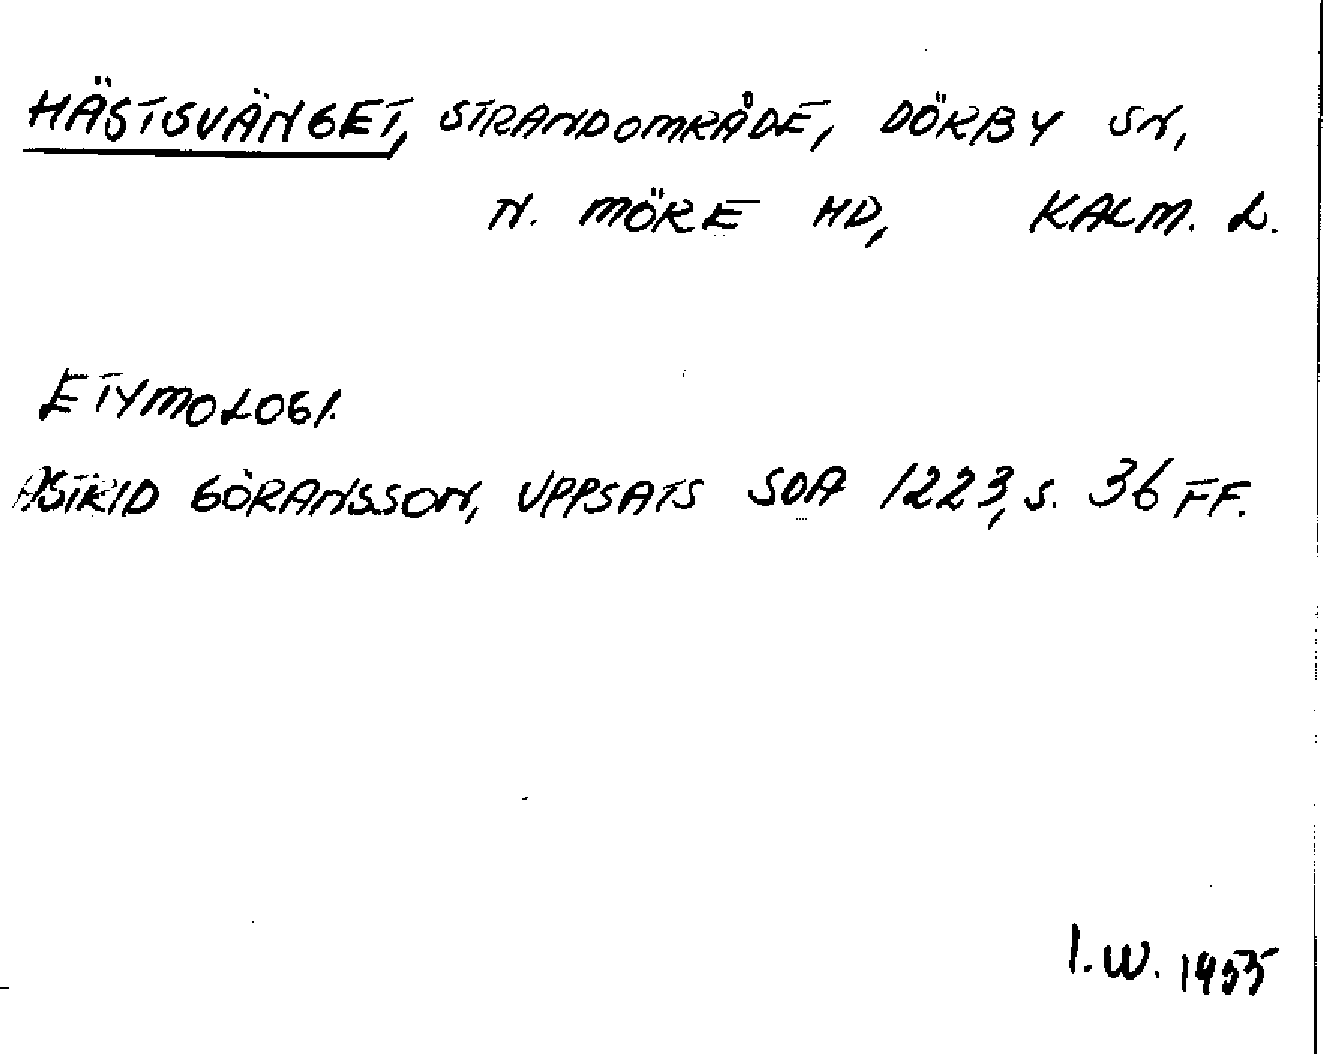 HÄSTSVÄNGET, STRANDOMRÅDE, DÖRBY SN,
N. MÖRE HD, KALM. L.
ETYMOLOGI.
ASTRID GÖRANSSON, UPPSATS SOA 1223, S. 36 FF.
I.W. 1955